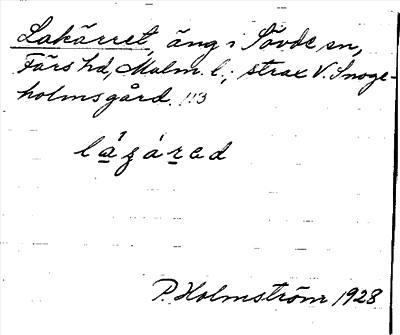 Lakärret, äng i Sövde sn,
Färs hd, Malm. l.; strax V. Snoge-
holmsgård.
P. Holmström 1928